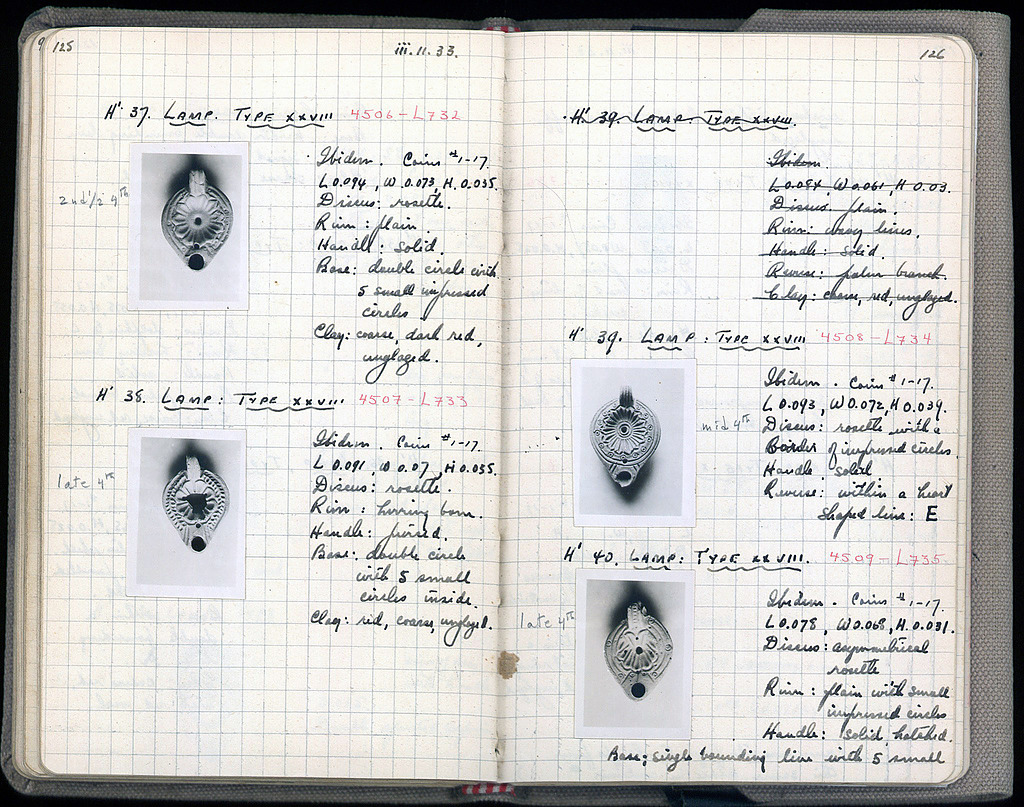 9 125
iii.11.33.
H' 37. LAMP. TYPE XXVIII 4506-L732
2nd 1/2 4th
Ibidem. Coins #1-17.
L 0.094, W 0.073, H 0.035.
Discus: rosette.
Rim: plain.
Handle: solid.
Base: double circle with
5 small impressed
circles.
Clay: coarse, dark red,
unglazed.
H' 38. LAMP: TYPE XXVIII 4507-L733
late 4th
Ibidem. Coins #1-17.
L 0.091, W 0.07, H 0.035.
Discus: rosette.
Rim: herring bone.
Handle: pierced.
Base: double circle
with 5 small
circles inside.
Clay: red, coarse, unglazed.
126
H' 39. LAMP. TYPE XXVIII.
Ibidem.
L 0.084, W 0.061, H 0.03.
Discus: plain.
Rim: wavy lines.
Handle: solid.
Reverse: palm branch.
Clay: coarse, red, unglazed.
H' 39. LAMP: TYPE XXVIII 4508-L734
mid 4th
Ibidem. Coins #1-17.
L 0.093, W 0.072, H 0.039.
Discus: rosette with a
Border of impressed circles.
Handle: solid
Reverse: within a heart
shaped line: E
H' 40. LAMP: TYPE XXVIII. 4509-L735
late 4th
Ibidem. Coins #1-17.
L 0.078, W 0.068, H 0.031.
Discus: asymmetrical
rosette
Rim: plain with small
impressed circles
Handle: solid, hatched.
Base: single bounding line with 5 small